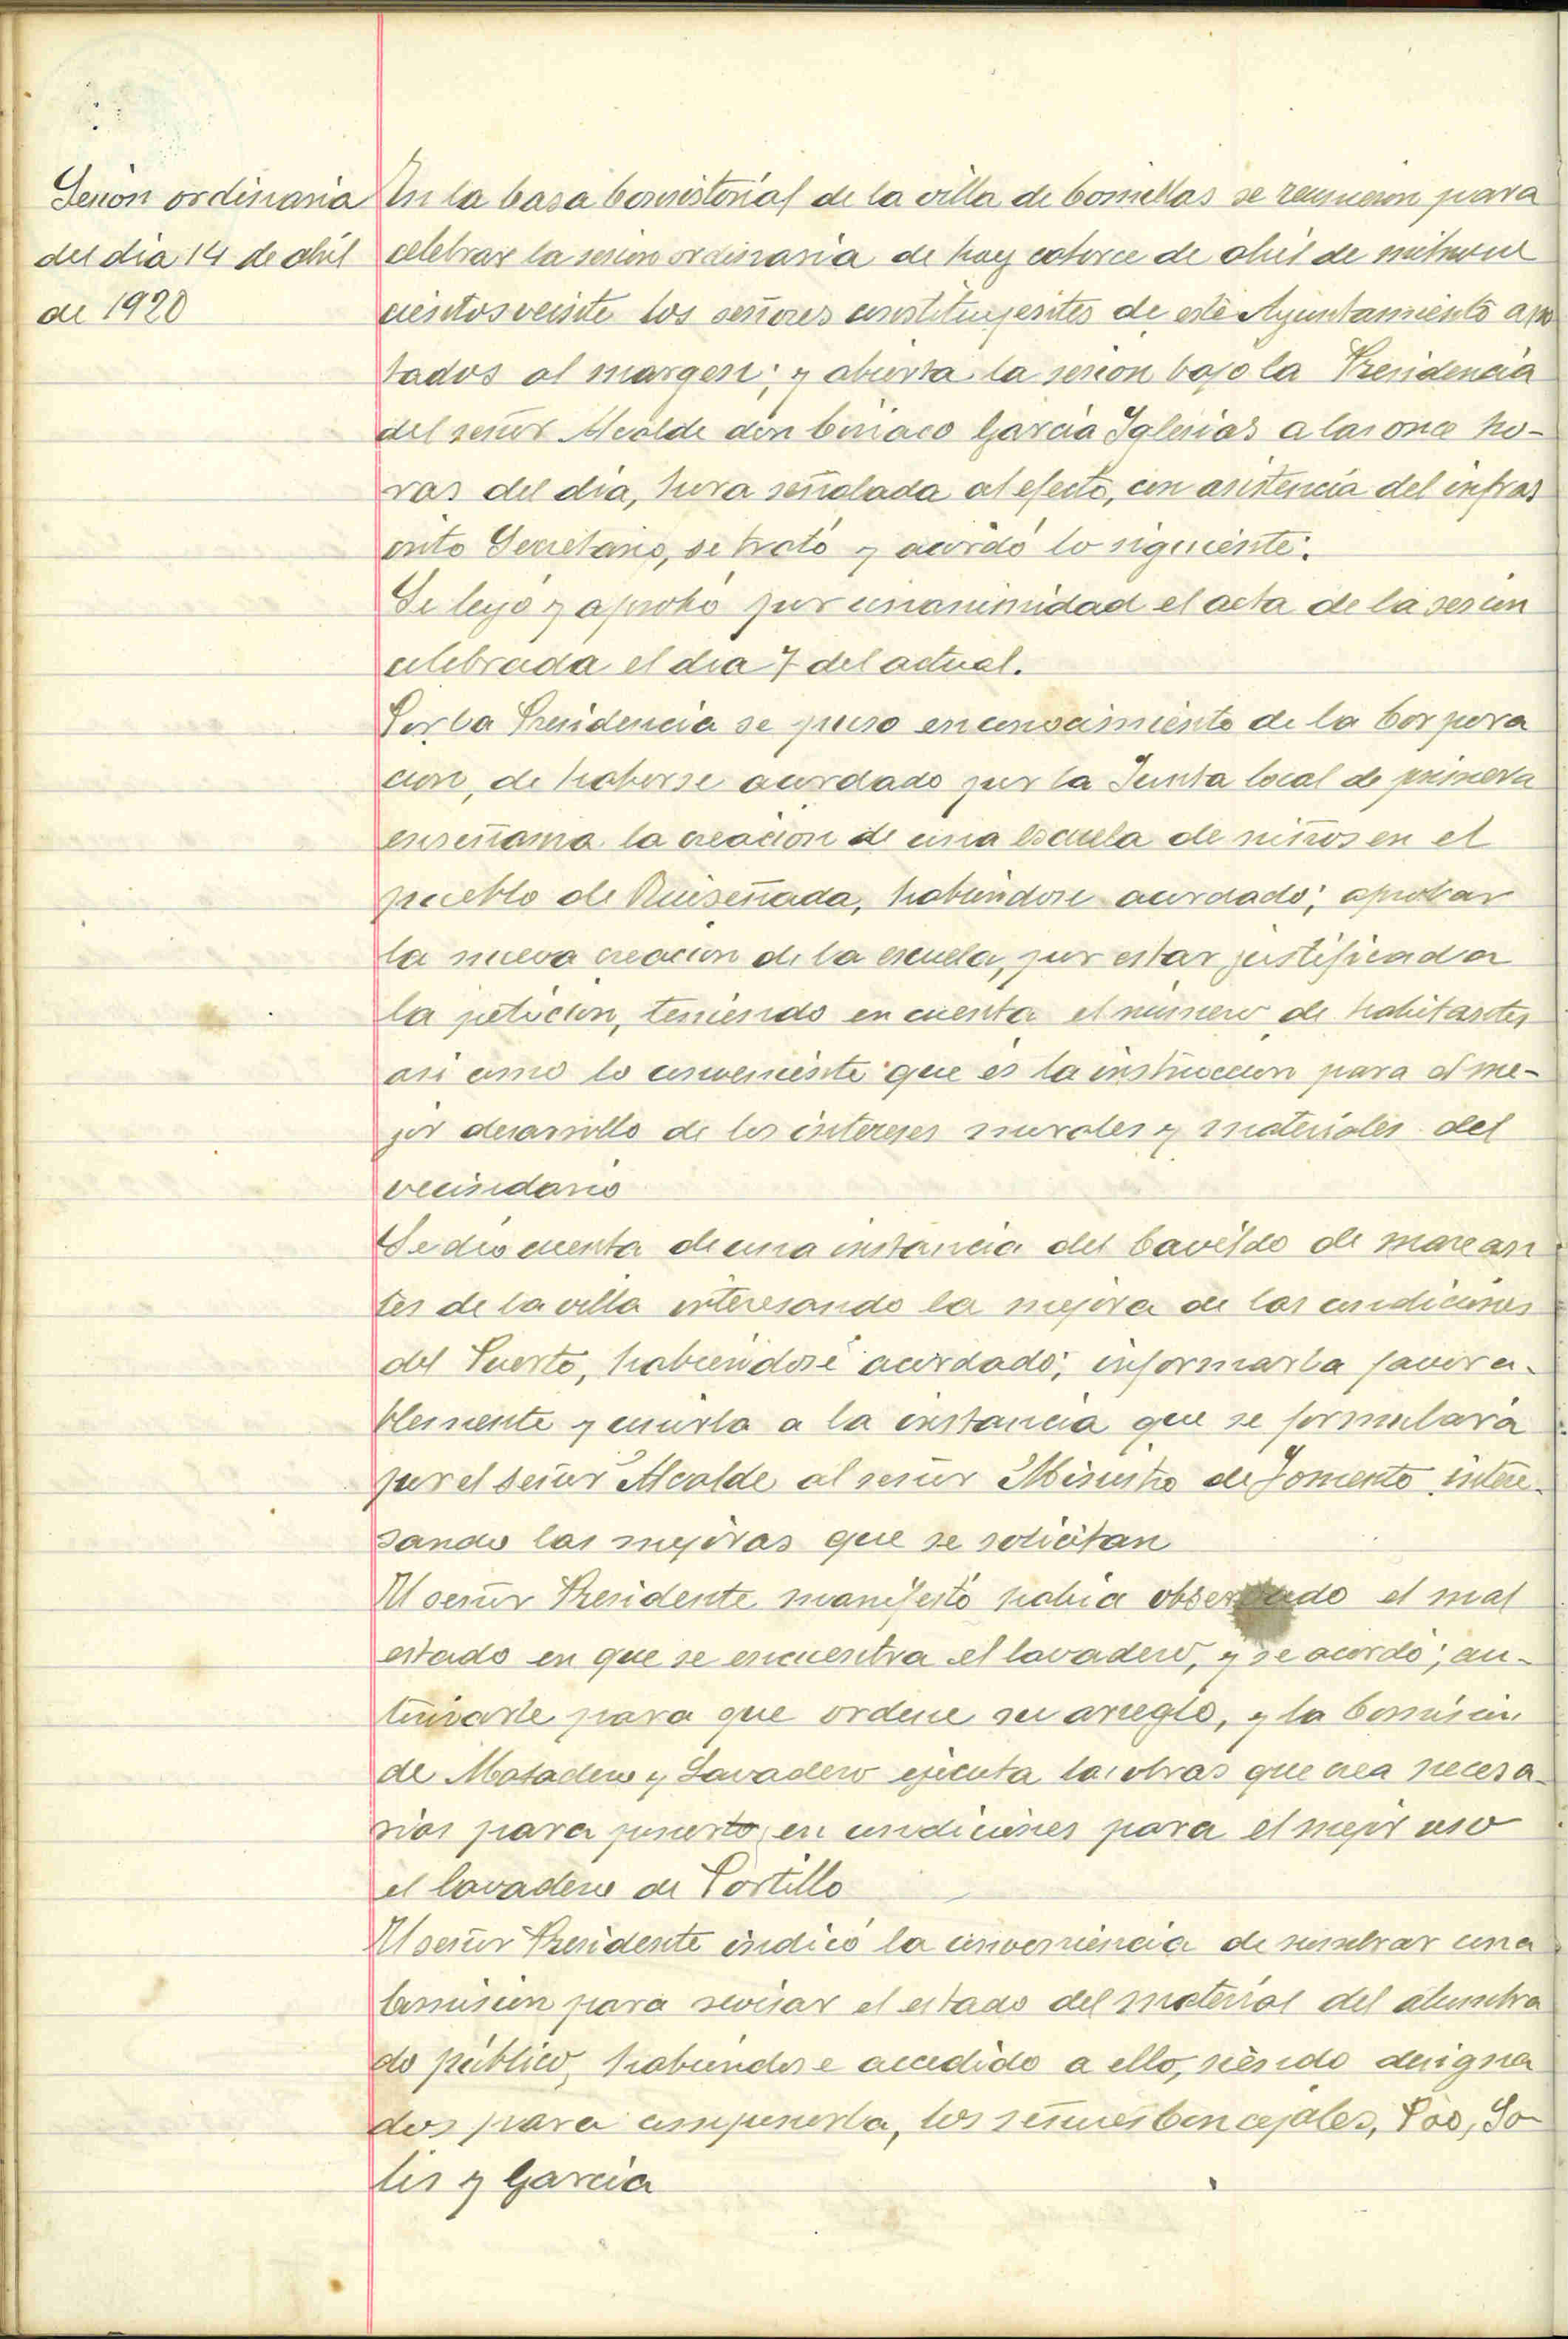 Sesión ordinaria
del dia 14 de abril
de 1920
En la Casa Consistorial de la villa de Comillas se reunieron para
celebrar la sesion ordinaria de hoy catorce de abril de mil nove
cientos veinte los señores constituyentes de este Ayuntamiento ano
tados al margen; y abierta la sesion bajo la Presidencia
del señor Alcalde don Ciriaco García Iglesias a las once ho-
ras del dia, hora señalada al efecto, con asistencia del infras
crito Secretario, se trató y acordó lo siguiente:
Se leyó y aprobó por unanimidad el acta de la sesion
celebrada el dia 7 del actual.
Por la Presidencia se puso en conocimiento de la Corpora
cion, de haberse acordado por la Junta local de primera
enseñanza la creacion de una escuela de niños en el
pueblo de Ruiseñada, habiendose acordado; aprobar
la nueva creacion de la escuela, por estar justificada
la peticion, teniendo en cuenta el número de habitantes
asi como lo conveniente que es la instruccion para el me-
jor desarrollo de los intereses morales y materiales del
vecindario
Se dio cuenta de una instancia del Cavildo de marean
tes de la villa interesando la mejora de las condiciones
del Puerto, habiendose acordado; informarla favora-
blemente y unirla a la instancia que se formulará
por el señor Alcalde al señor Ministro de Fomento intere-
sando las mejoras que se solicitan
El señor Presidente manifestó habia observado el mal
estado en que se encuentra el lavadero, y se acordó; au-
torizarle para que ordene su arreglo, y la Comision
de Matadero y Lavadero ejecuta las obras que crea necesa-
rias para ponerlo en condiciones para el mejor uso
el lavadero de Portillo
El señor Presidente indicó la conveniencia de nombrar una
Comision para revisar el estado del material del alumbra
do público, habiendose accedido a ello, siendo designa
dos para componerla, los señores Concejales, Poo, So
lis y Garcia